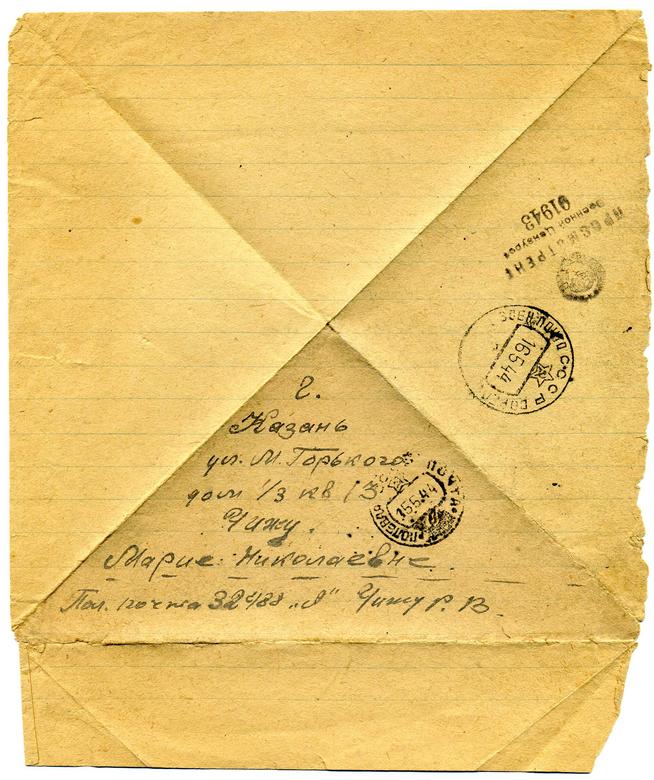 ПРОСМОТРЕНО
Военной Цензурой
91943
СССР
16 5 44
г.
Казань
ул. М. Горького
дом 1/3 кв 13
Чижу.
Марие Николаевне
ПОЛЕВАЯ ПОЧТА
15 5 44
Пол. почта 32488 „Я" Чижу Р. В.